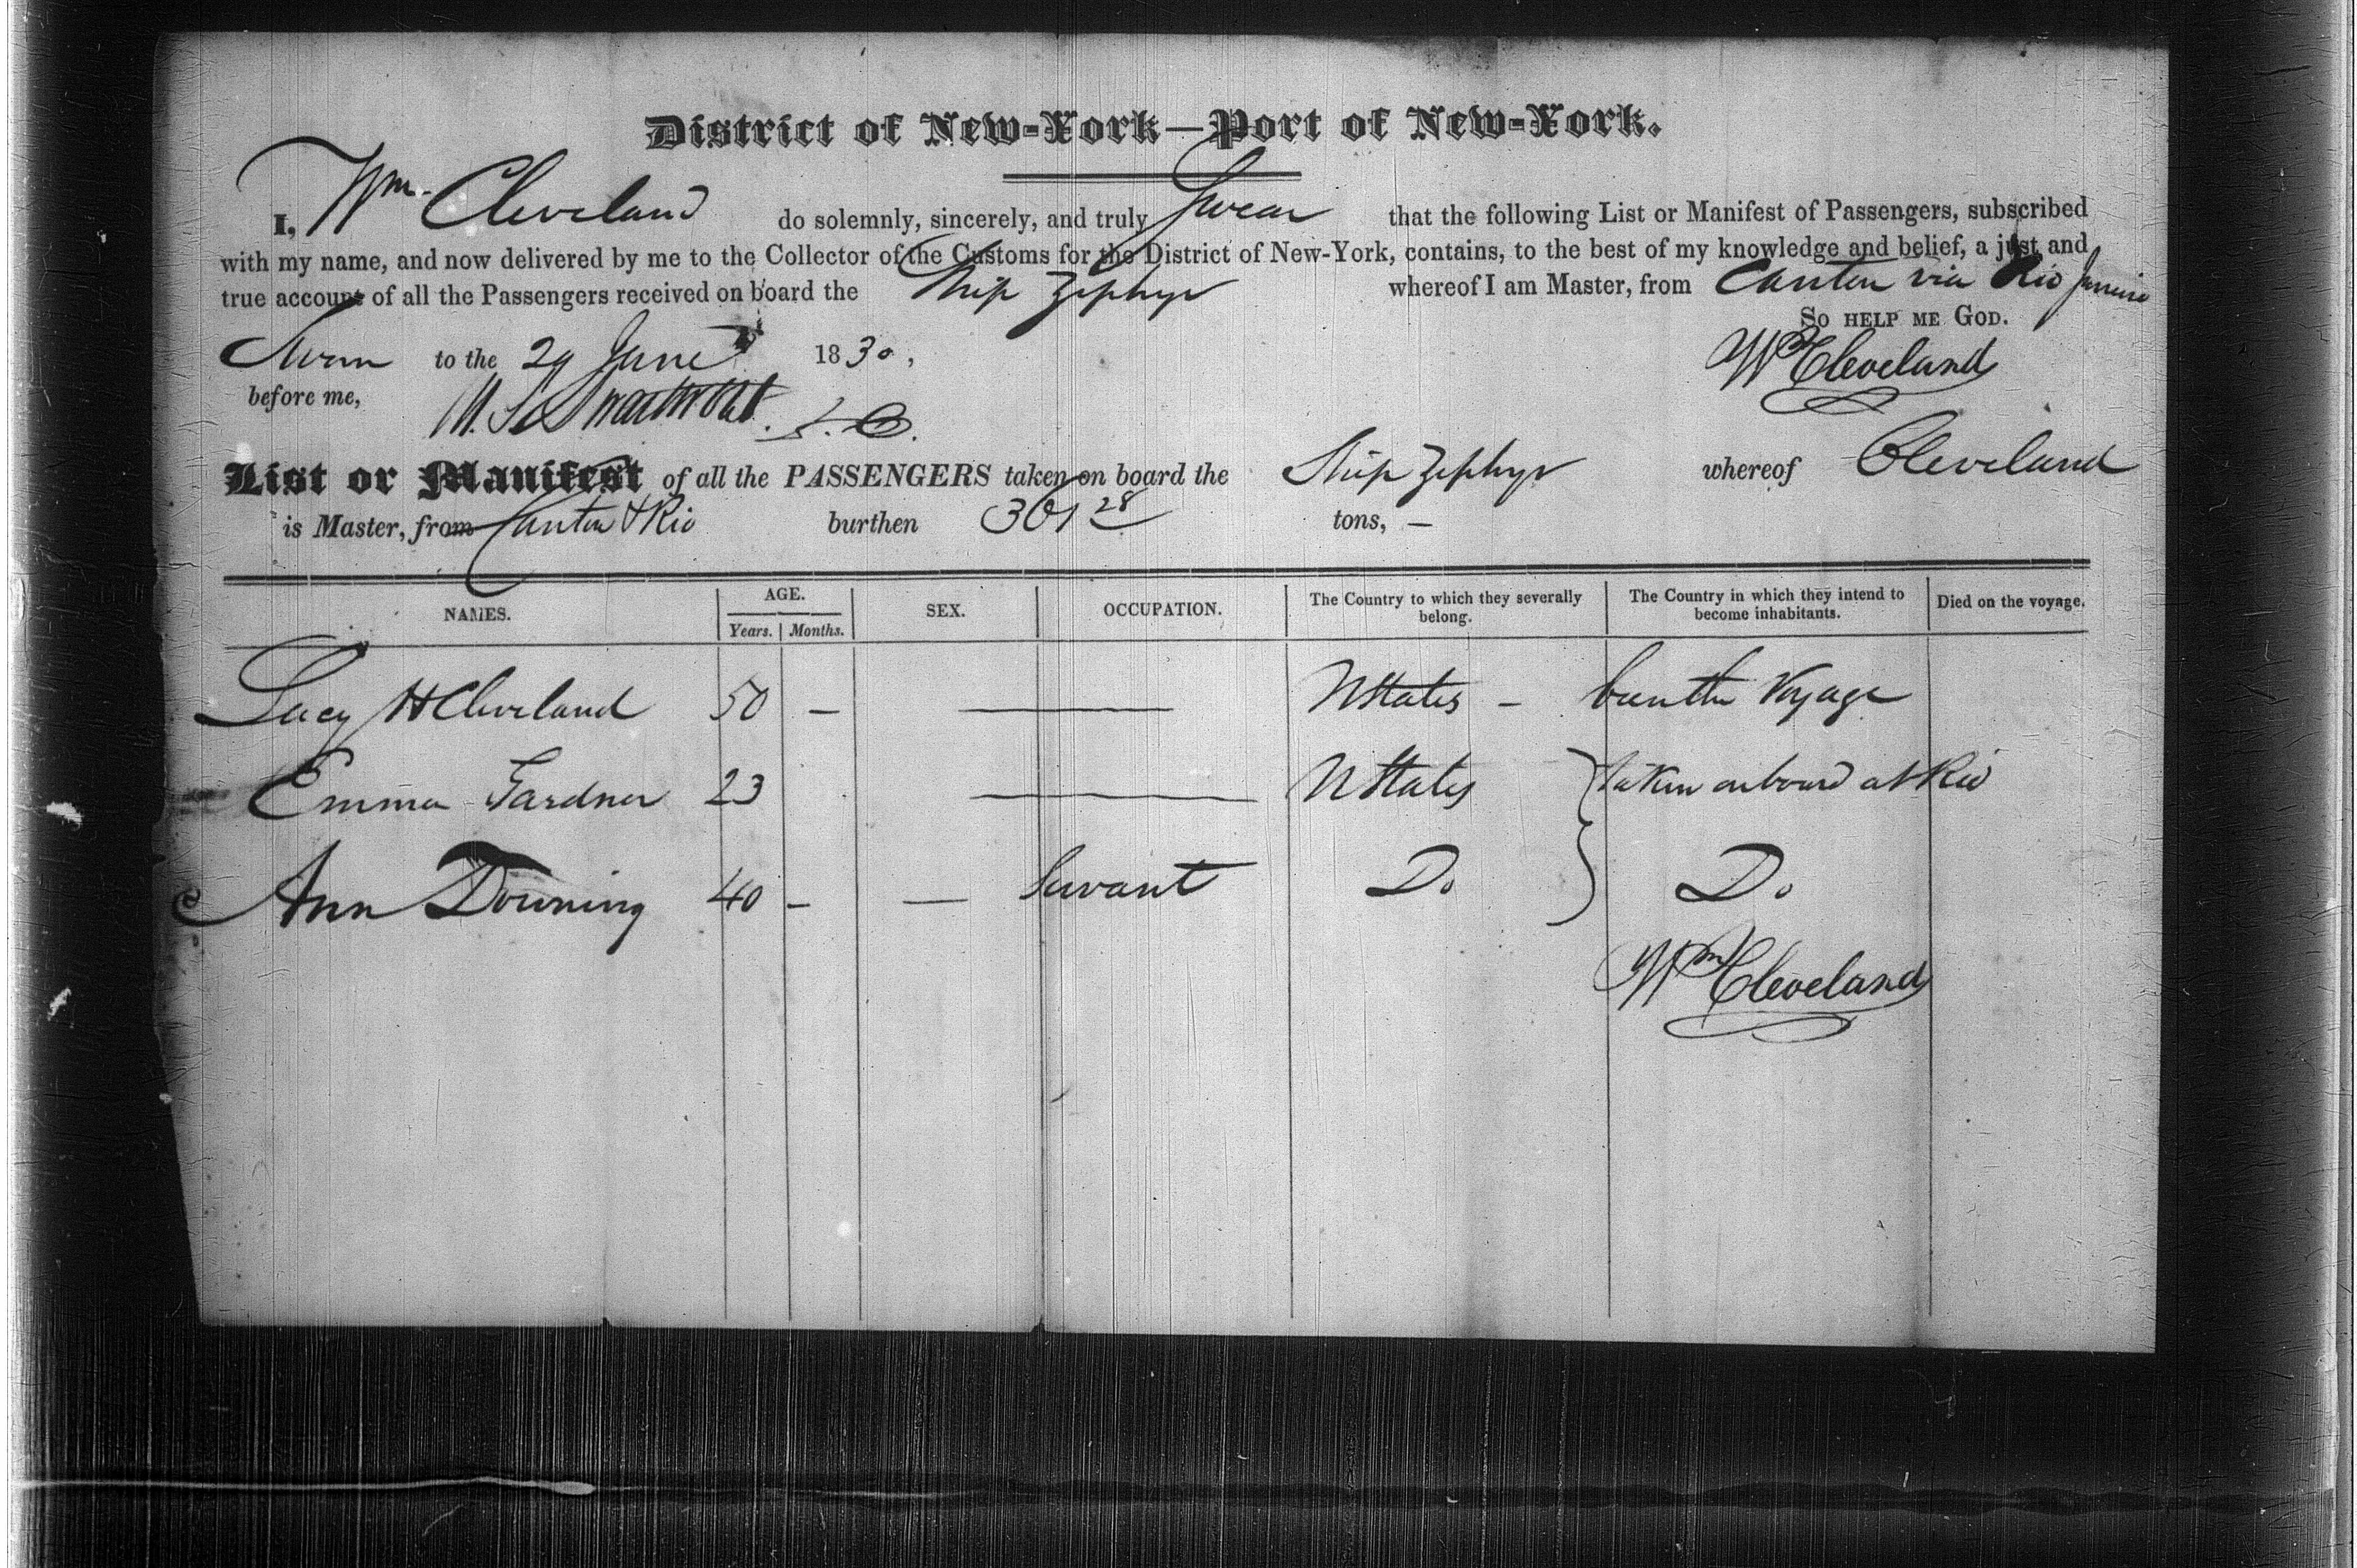 District of New-York—Port of New-York.
I, Wm. Cleveland do solemnly, sincerely, and truly Swear that the following List or Manifest of Passengers, subscribed
with my name, and now delivered by me to the Collector of the Customs for the District of New-York, contains, to the best of my knowledge and belief, a just and
true account of all the Passengers received on board the Ship Zephyr whereof I am Master, from Canton via Rio Janeiro
So help me God.
Sworn to the 29 June 1830,
Wm Cleveland
before me,
M. Swartwout
List or Manifest of all the PASSENGERS taken on board the Ship Zephyr whereof Cleveland
is Master, from Canton & Rio burthen 361 28 tons, —
NAMES. AGE. SEX. OCCUPATION. The Country to which they severally belong. The Country in which they intend to become inhabitants. Died on the voyage.
Years. Months.
Lucy H Cleveland 50 — — UStates – Voyage
Emma Gardner 23 — UStates taken onboard at Rio
Ann Downing 40 – — Servant Do Do
Wm Cleveland